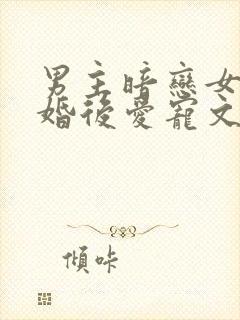 男主暗戀女
婚後愛寵文
傾咔